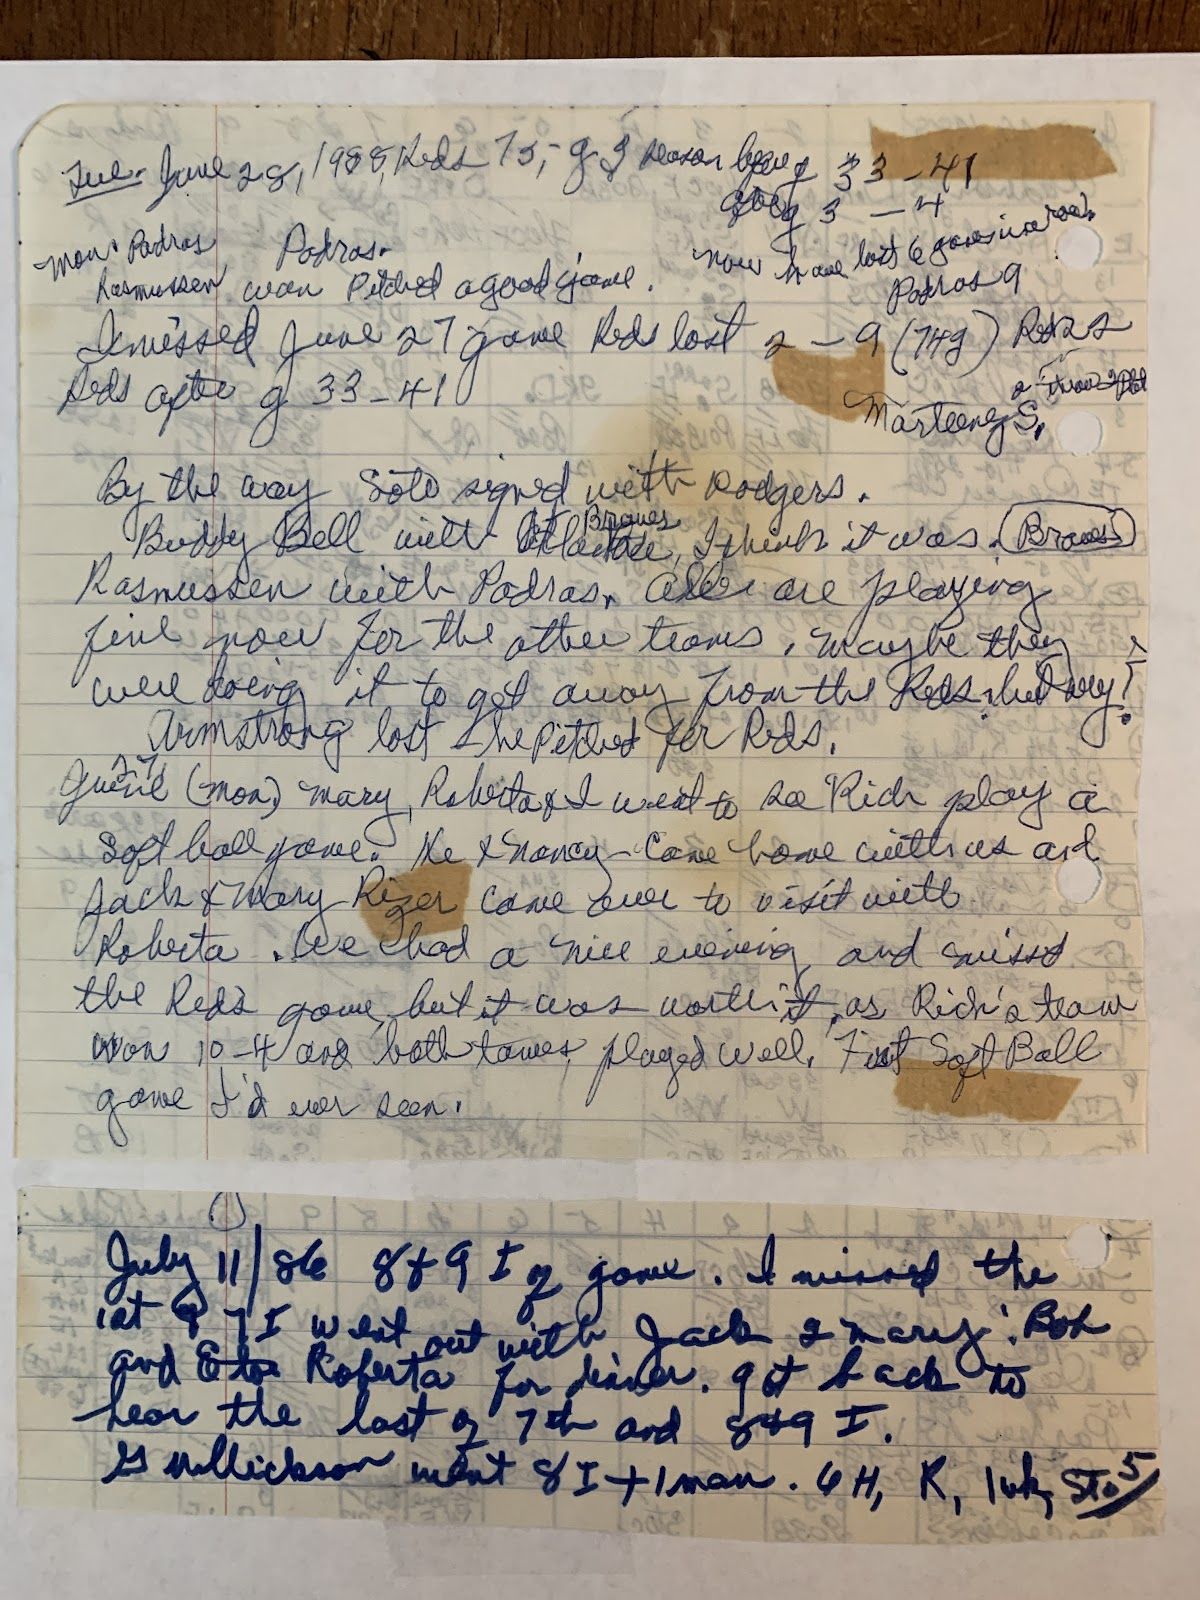 Tue. June 28, 1988, Reds 75, g of season before g 33-41
after g 3 - 4
Mon. Padras Padras.
now have lost 6 games in a row.
Rasmussen won Pitched a good game.
Padras 9
I missed June 27 game Reds lost 2-9 (74g) Reds 2
Reds after g 33-41
Marteenez S.
By the way Soto signed with Dodgers.
Braves
Buddy Bell with , I think it was. Braves
Rasmussen with Padras. All are playing
fine now for the other teams. Maybe they
were doing it to get away from the Reds. but why?
Armstrong lost & he Pitched for Reds.
27
June (mon.) Mary, Roberta & I went to see Rich play a
Soft ball game. He & Nancy Came home with us and
Jack & Mary Rizer came over to visit with
Roberta. We had a nice evening and missed
the Red's game, but it was worth it, as Rich's team
won 10-4 and both teams played well. First Soft Ball
game I'd ever seen.
July 11/86 8 & 9 I of game. I missed the
1st 7 I went out with Jack & Mary. Bob
and Roberta for dinner. got back to
hear the last of 7th and 8&9 I.
Gullickson went 8 I + 1 man. 6 H, K, 1wk, Sto 5